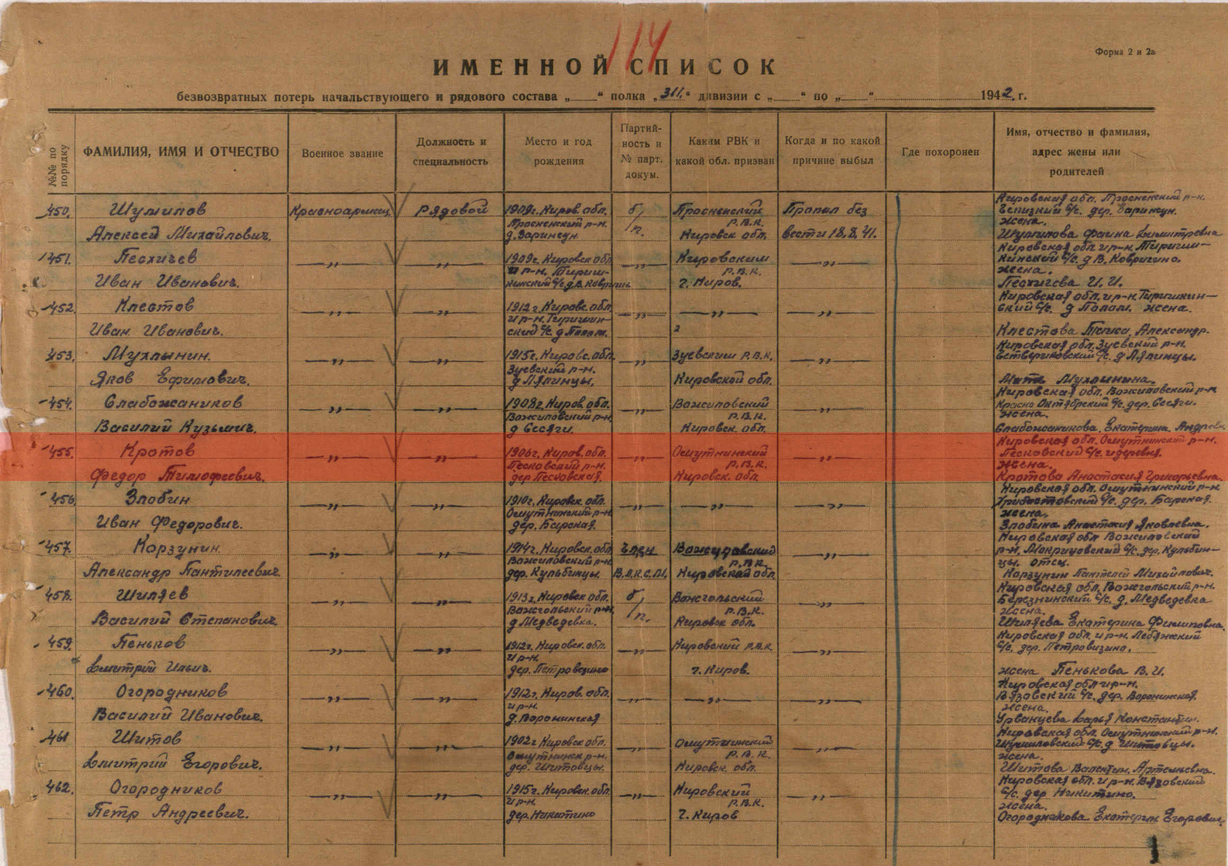 114
Форма 2 и 2а
ИМЕННОЙ СПИСОК
безвозвратных потерь начальствующего и рядового состава „ “ полка „311“ дивизии с „ “ по „ “ 1942 г.
№№ по порядку
ФАМИЛИЯ, ИМЯ И ОТЧЕСТВО
Военное звание
Должность и специальность
Место и год рождения
Партийность и № парт. докум.
Каким РВК и какой обл. призван
Когда и по какой причине выбыл
Где похоронен
Имя, отчество и фамилия, адрес жены или родителей
450. Шумилов Алексей Михайлович. Красноармеец Рядовой 1909г. Киров. обл. Просненский р-н. б/п. Просненский Р.В.К. Кировск обл. Пропал без вести 18.8.41. Кировская обл. жена. Шумилова Фаина Дмитриевна
451. Иван Иванович. —„— —„— 1909г. Кировск обл. —„— Кировским Р.В.К. г. Киров. —„— Кировская обл. жена. И. И.
452. Клестов Иван Иванович. —„— —„— 1912г. Кировск обл. —„— —„— —„— Кировская обл. жена. Клестова Александр.
453. Мухлынин. Яков Ефимович. —„— —„— 1915г. Кировс. обл. Зуевский р-н. д Ляпинцы. —„— Зуевским Р.В.К. Кировской обл. —„— Кировская обл. Зуевский р-н. д Ляпинцы. Мать Мухлынина.
454. Слабожаников Василий Кузьмич. —„— —„— 1908г. Киров. обл. д Бесяги. —„— Р.В.К. Кировск. обл. —„— Кировская обл. Красно Октябрский с/с. дер. Бесяги. жена. Слабожаникова. Екатерина Андреев
455. Кротов Федор Тимофеевич. —„— —„— 1906г. Киров. обл. Песковский р-н. дер Песковская. —„— Омутнинский Р.В.К. Кировск. обл —„— Кировская обл. Омутнинский р-н. Песковский с/с. и деревня. жена. Кротова Анастасия Григорьевна.
456. Злобин Иван Федорович. —„— —„— 1910г. Кировск. обл. Омутнинский р-н дер. Барская. —„— —„— —„— Кировская обл. Омутнинский р-н. дер. Барская. жена. Злобина Анастасия Яковлевна.
457. Корзунин. Александр Пантилеевич. —„— —„— 1914г. Кировск. обл. дер. Кульбинцы. член В.Л.К.С.М. Р.В.К. Кировской обл. —„— Кировская обл. дер. Кульбинцы. отец. Корзунин Пантелей Михайлович.
458. Шиляев Василий Степанович —„— —„— 1913г. Кировск. обл. Вожгальский р-н д Медведевка. б/п. Вожгальский Р.В.К. Кировск обл. —„— Кировская обл. Вожгальский р-н. Березнинский с/с. д. Медведевка жена. Шиляева Екатерина Филиповна.
459. Пеньков Дмитрий Ильич. —„— —„— 1912г. Кировск. обл и р-н. —„— Кировский Р.В.К г. Киров. —„— Кировская обл. и р-н. с/с. дер. жена Пенькова В. И.
460. Огородников Василий Иванович. —„— —„— 1912г. Киров. обл. и р-н. д. Воронинская —„— —„— —„— Кировская обл и р-н. Вязовский с/с. дер. Воронинская. жена. Урванцева Дарья Константин.
461 Шитов Дмитрий Егорович. —„— —„— 1902г. Кировск обл. Омутнинск р-н. дер. Шитовцы. —„— Омутнинский Р.В.К. Кировск обл. —„— Кировская обл. Омутнинский р-н. с/с. д Шитовцы. жена. Шитова Валентин. Артемьевна.
462. Огородников Петр Андреевич. —„— —„— 1915г. Кировск. обл и р-н. дер. Никитино —„— Кировский Р.В.К. г. Киров —„— Кировская обл. и р-н. Вязовский с/с. дер. Никитино. жена. Огородникова Екатерин Егоровна.